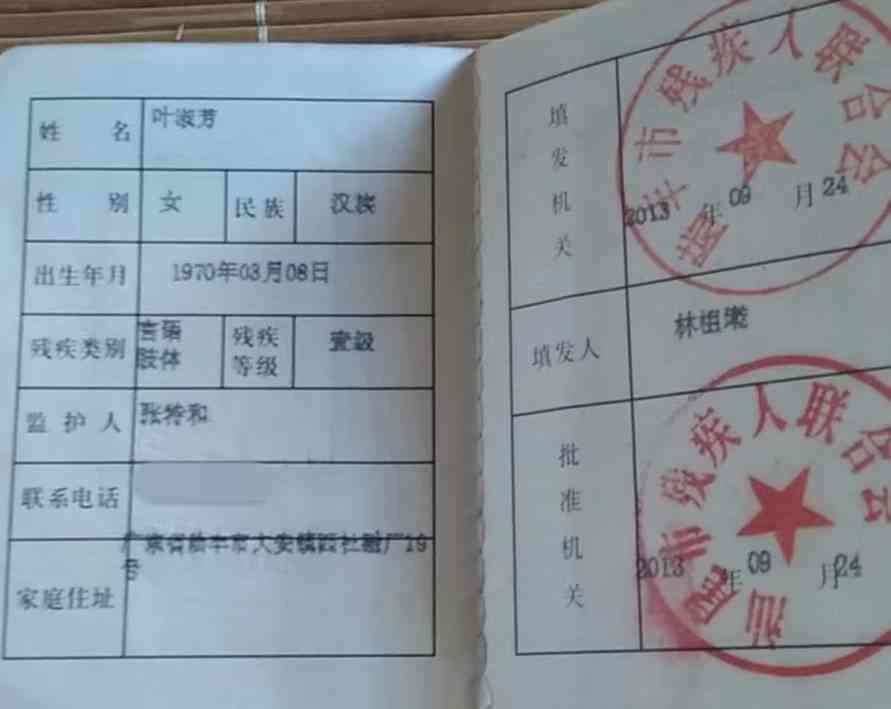 姓名 叶淑芳
性别 女 民族 汉族
出生年月 1970年03月08日
残疾类别 言语 肢体 残疾等级 壹级
监护人 张特和
联系电话
家庭住址 广东省陆丰市大安镇 19号
填发机关 2013年09月24
陆丰市残疾人联合会
填发人 林祖
批准机关 2013年09月24
汕尾市残疾人联合会